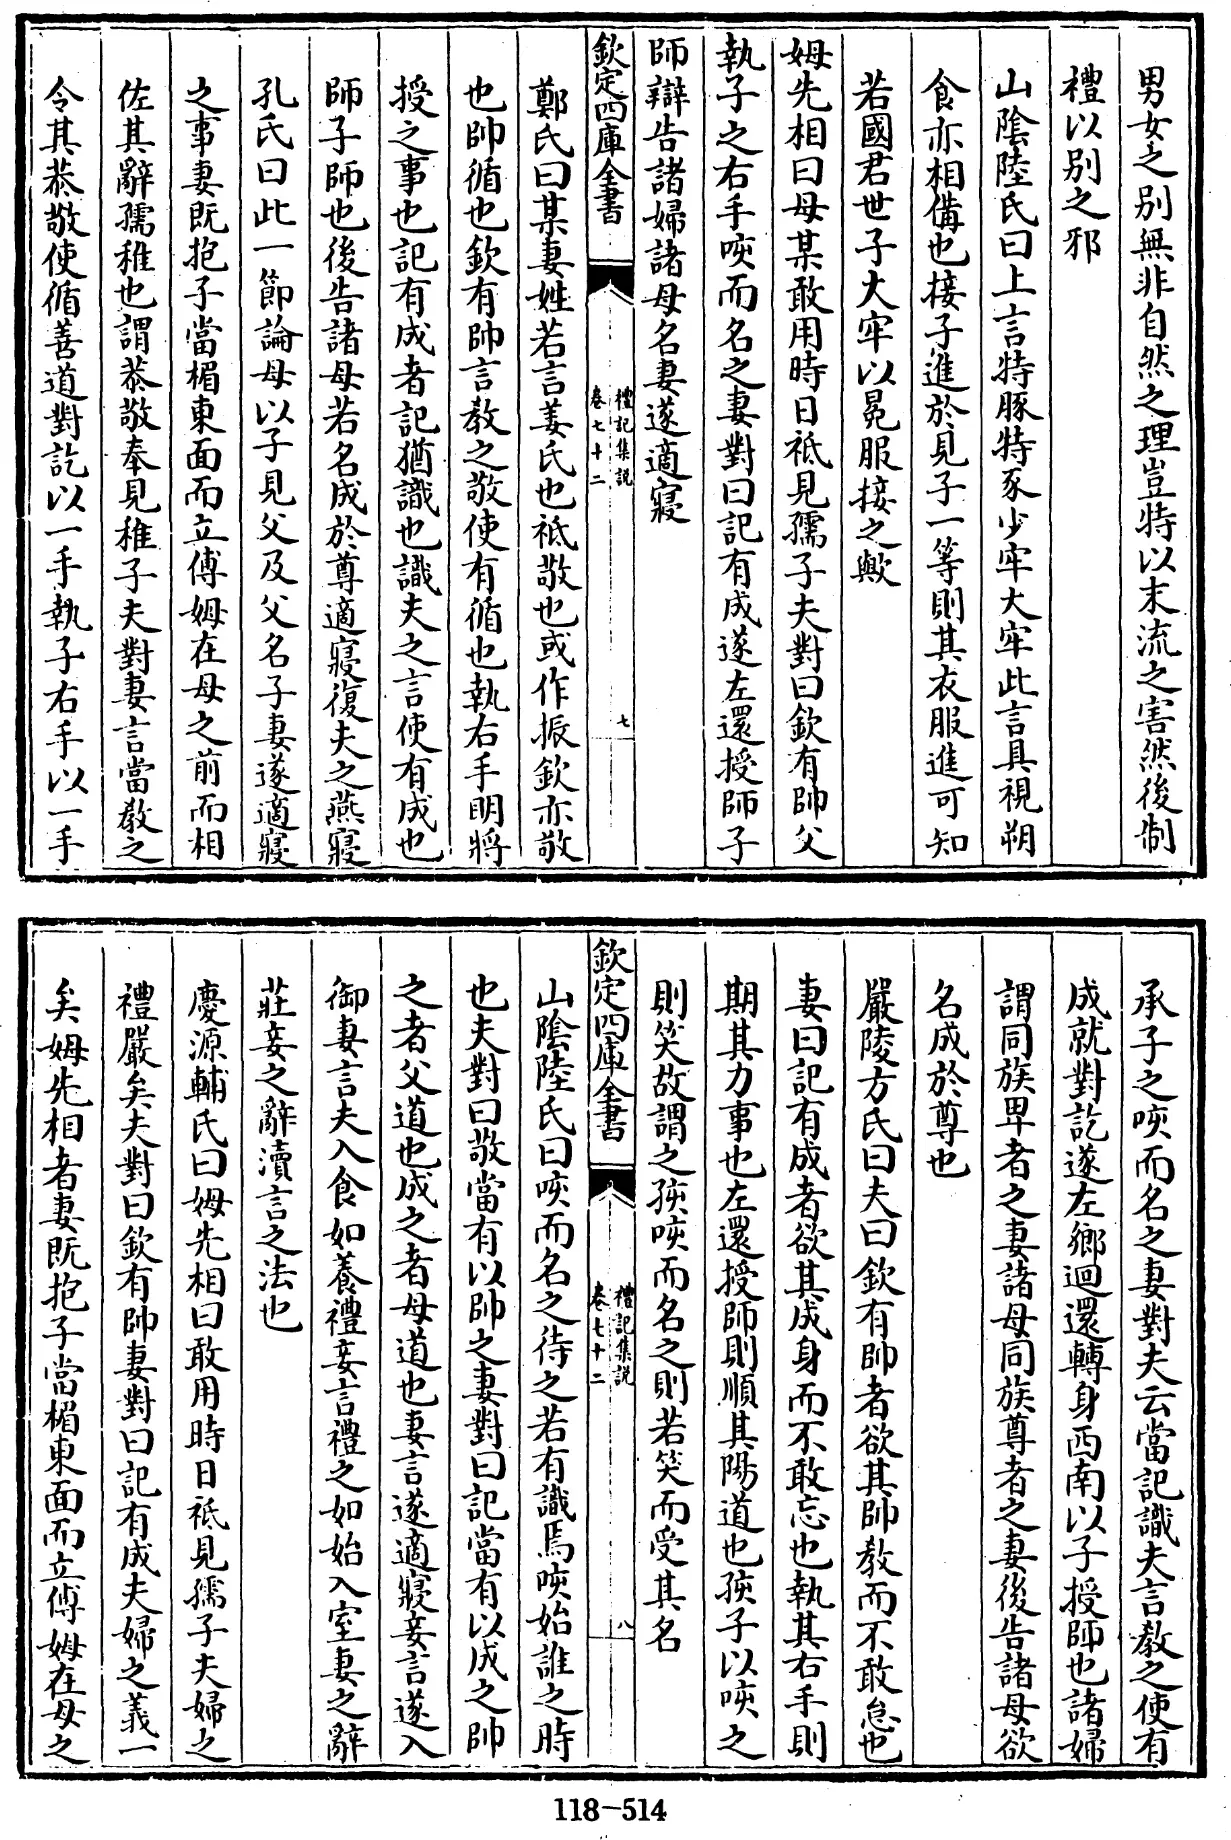 男女之别無非自然之理豈特以末流之害然後制
禮以别之邪
山陰陸氏曰上言特豚特豕少牢大牢此言具視朔
食亦相備也接子進於見子一等則其衣服進可知
若國君世子大牢以冕服接之歟
姆先相曰母某敢用時日祗見孺子夫對曰欽有帥父
執子之右手咳而名之妻對曰記有成遂左還授師子
師辯告諸婦諸母名妻遂適寢
欽定四庫全書
禮記集説
卷七十二
七
鄭氏曰某妻姓若言姜氏也祗敬也或作振欽亦敬
也帥循也欽有帥言教之敬使有循也執右手明將
授之事也記有成者記猶識也識夫之言使有成也
師子師也後告諸母若名成於尊適寢復夫之燕寢
孔氏曰此一節論母以子見父及父名子妻遂適寢
之事妻既抱子當楣東面而立傅姆在母之前而相
佐其辭孺稚也謂恭敬奉見稚子夫對妻言當教之
令其恭敬使循善道對訖以一手執子右手以一手
承子之咳而名之妻對夫云當記識夫言教之使有
成就對訖遂左鄉迴還轉身西南以子授師也諸婦
謂同族卑者之妻諸母同族尊者之妻後告諸母欲
名成於尊也
嚴陵方氏曰夫曰欽有帥者欲其帥教而不敢怠也
妻曰記有成者欲其成身而不敢忘也執其右手則
期其力事也左還授師則順其陽道也孩子以咳之
則笑故謂之孩咳而名之則若笑而受其名
欽定四庫全書
禮記集説
卷七十二
八
山陰陸氏曰咳而名之待之若有識焉咳始誰之時
也夫對曰敬當有以帥之妻對曰記當有以成之帥
之者父道也成之者母道也妻言遂適寢妾言遂入
御妻言夫入食如養禮妾言禮之如始入室妻之辭
莊妾之辭瀆言之法也
慶源輔氏曰姆先相曰敢用時日祗見孺子夫婦之
禮嚴矣夫對曰欽有帥妻對曰記有成夫婦之義一
矣姆先相者妻既抱子當楣東面而立傅姆在母之
118-514